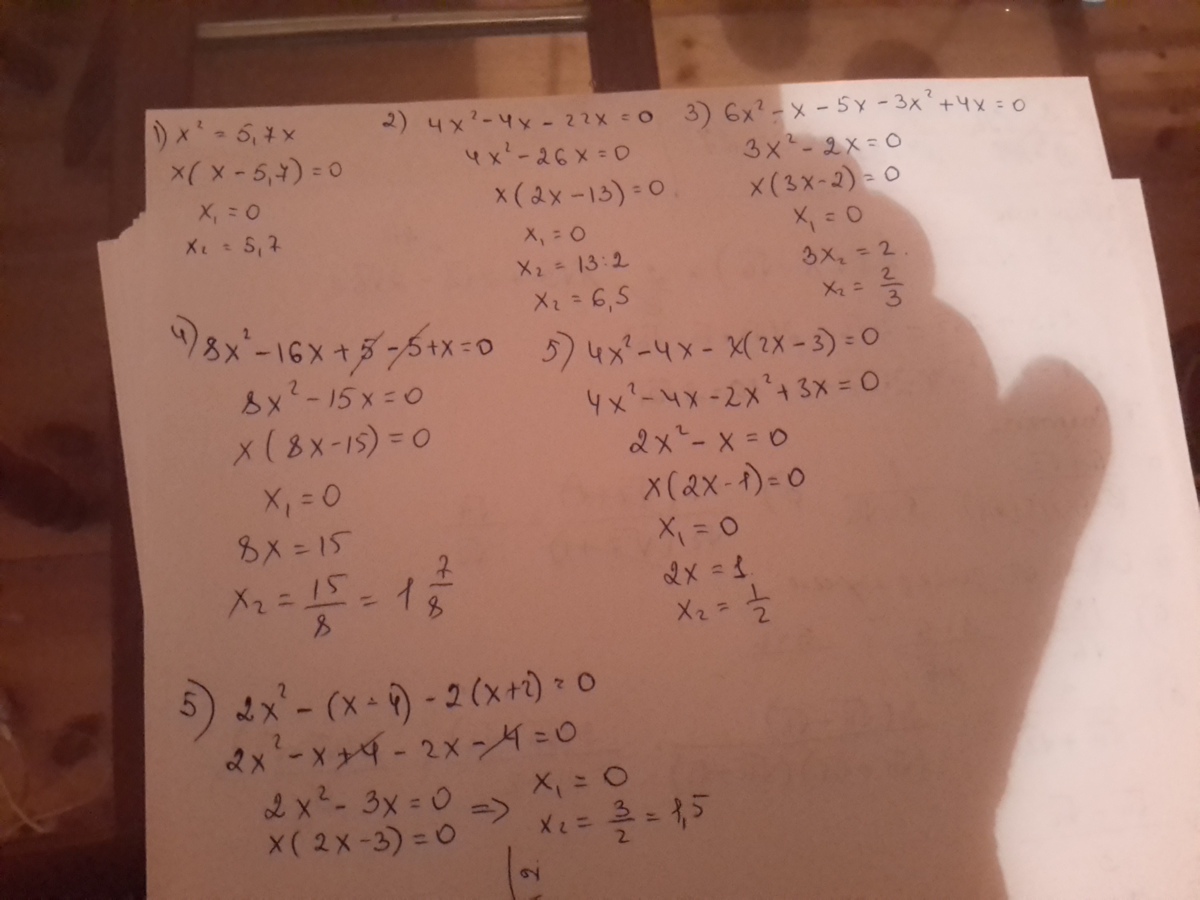 1) x² = 5,7x
x(x - 5,7) = 0
x₁ = 0
x₂ = 5,7
2) 4x² - 4x - 22x = 0
4x² - 26x = 0
x(2x - 13) = 0
x₁ = 0
x₂ = 13:2
x₂ = 6,5
3) 6x² - x - 5x - 3x² + 4x = 0
3x² - 2x = 0
x(3x - 2) = 0
x₁ = 0
3x₂ = 2
x₂ = 2/3
4) 8x² - 16x + 5 - 5 + x = 0
8x² - 15x = 0
x(8x - 15) = 0
x₁ = 0
8x = 15
x₂ = 15/8 = 1 7/8
5) 4x² - 4x - x(2x - 3) = 0
4x² - 4x - 2x² + 3x = 0
2x² - x = 0
x(2x - 1) = 0
x₁ = 0
2x = 1
x₂ = 1/2
5) 2x² - (x - 4) - 2(x + 2) = 0
2x² - x + 4 - 2x - 4 = 0
2x² - 3x = 0 =>
x(2x - 3) = 0
x₁ = 0
x₂ = 3/2 = 1,5